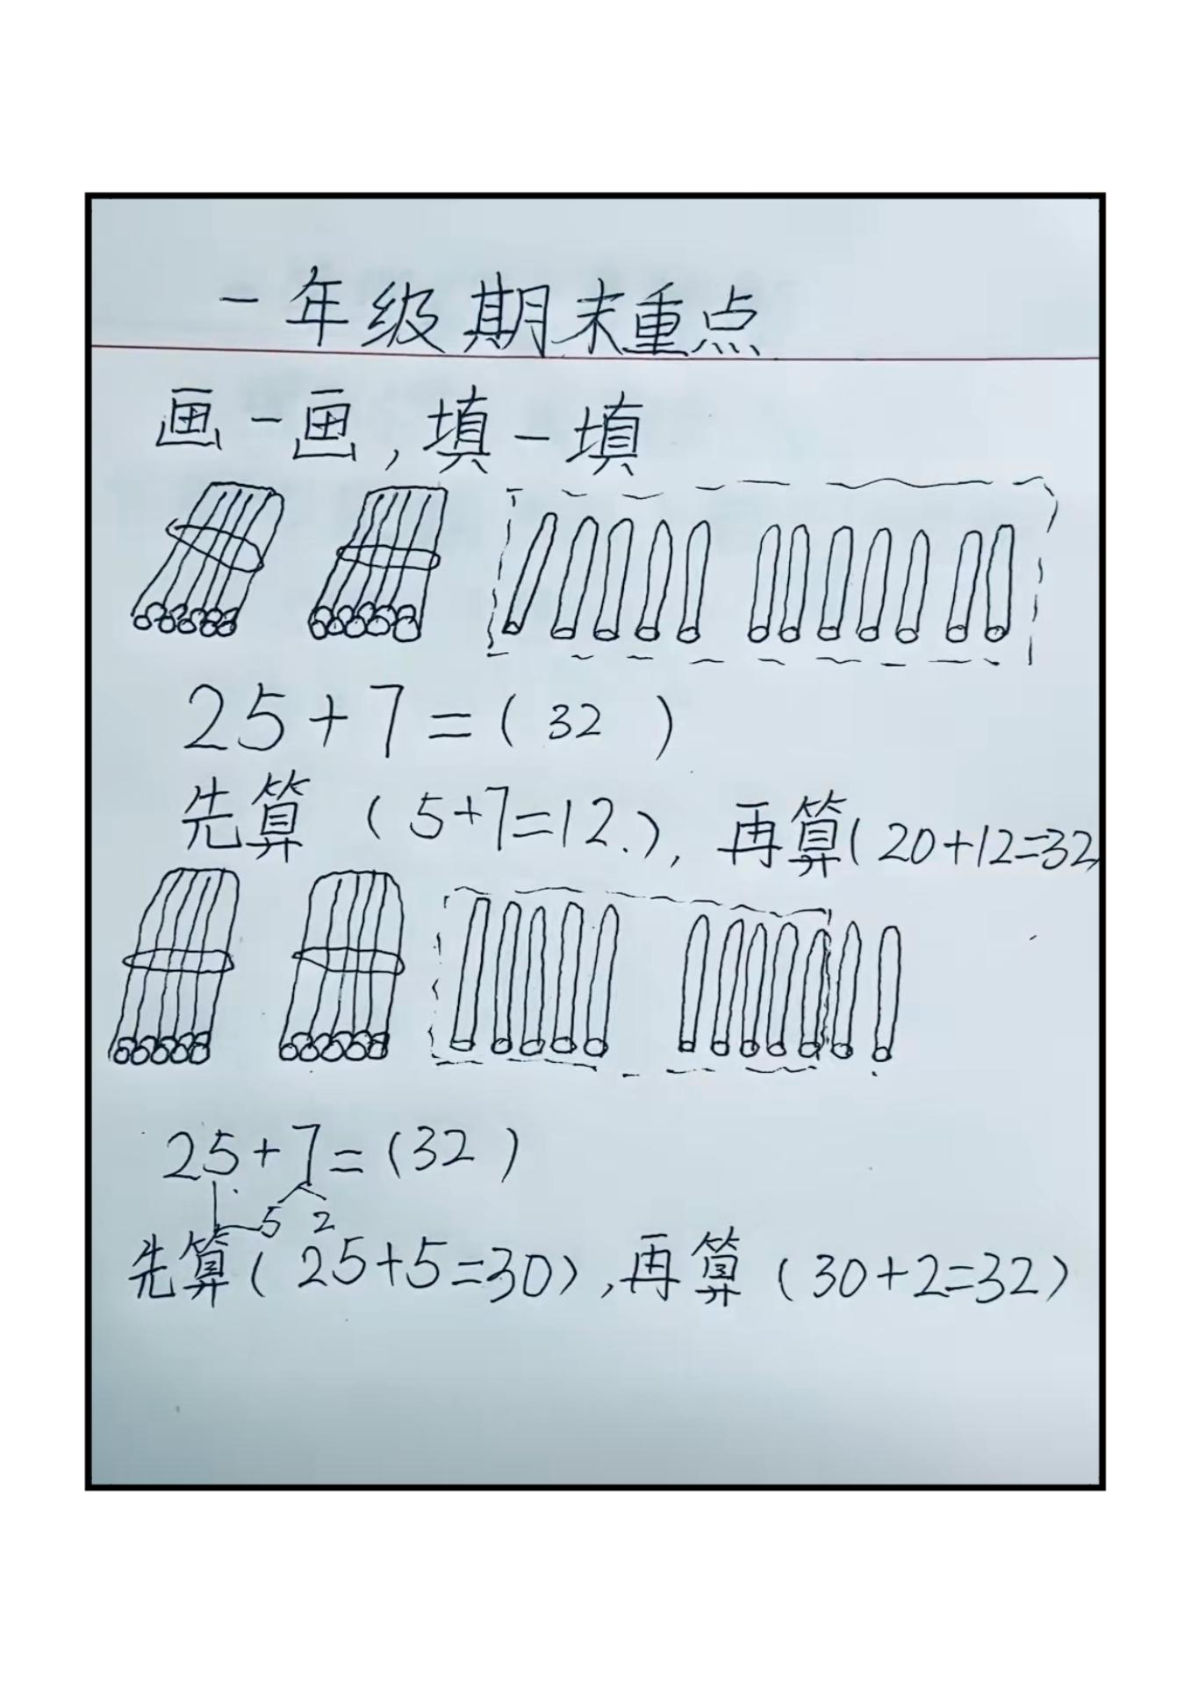 一年级期末重点
画一画,填一填
25+7=(32)
先算(5+7=12.),再算(20+12=32)
25+7=(32)
5 2
先算(25+5=30),再算(30+2=32)